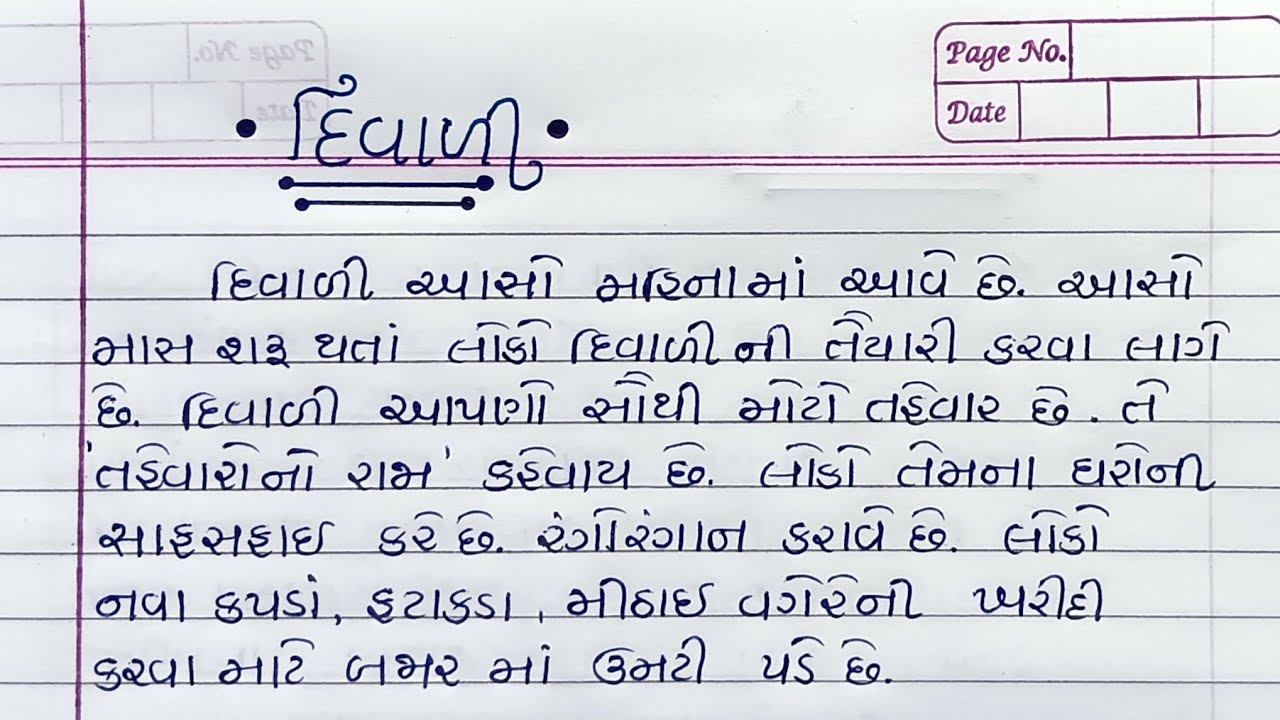 Page No.
Date
• દિવાળી •
દિવાળી આસો મહિનામાં આવે છે. આસો
માસ શરૂ થતાં લોકો દિવાળી ની તૈયારી કરવા લાગે
છે. દિવાળી આપણો સૌથી મોટો તહેવાર છે. તે
'તહેવારોનો રાજા' કહેવાય છે. લોકો તેમના ઘરોની
સાફસફાઇ કરે છે. રંગોરંગાન કરાવે છે. લોકો
નવા કપડાં, ફટાકડા, મીઠાઇ વગેરેની ખરીદી
કરવા માટે બજાર માં ઉમટી પડે છે.